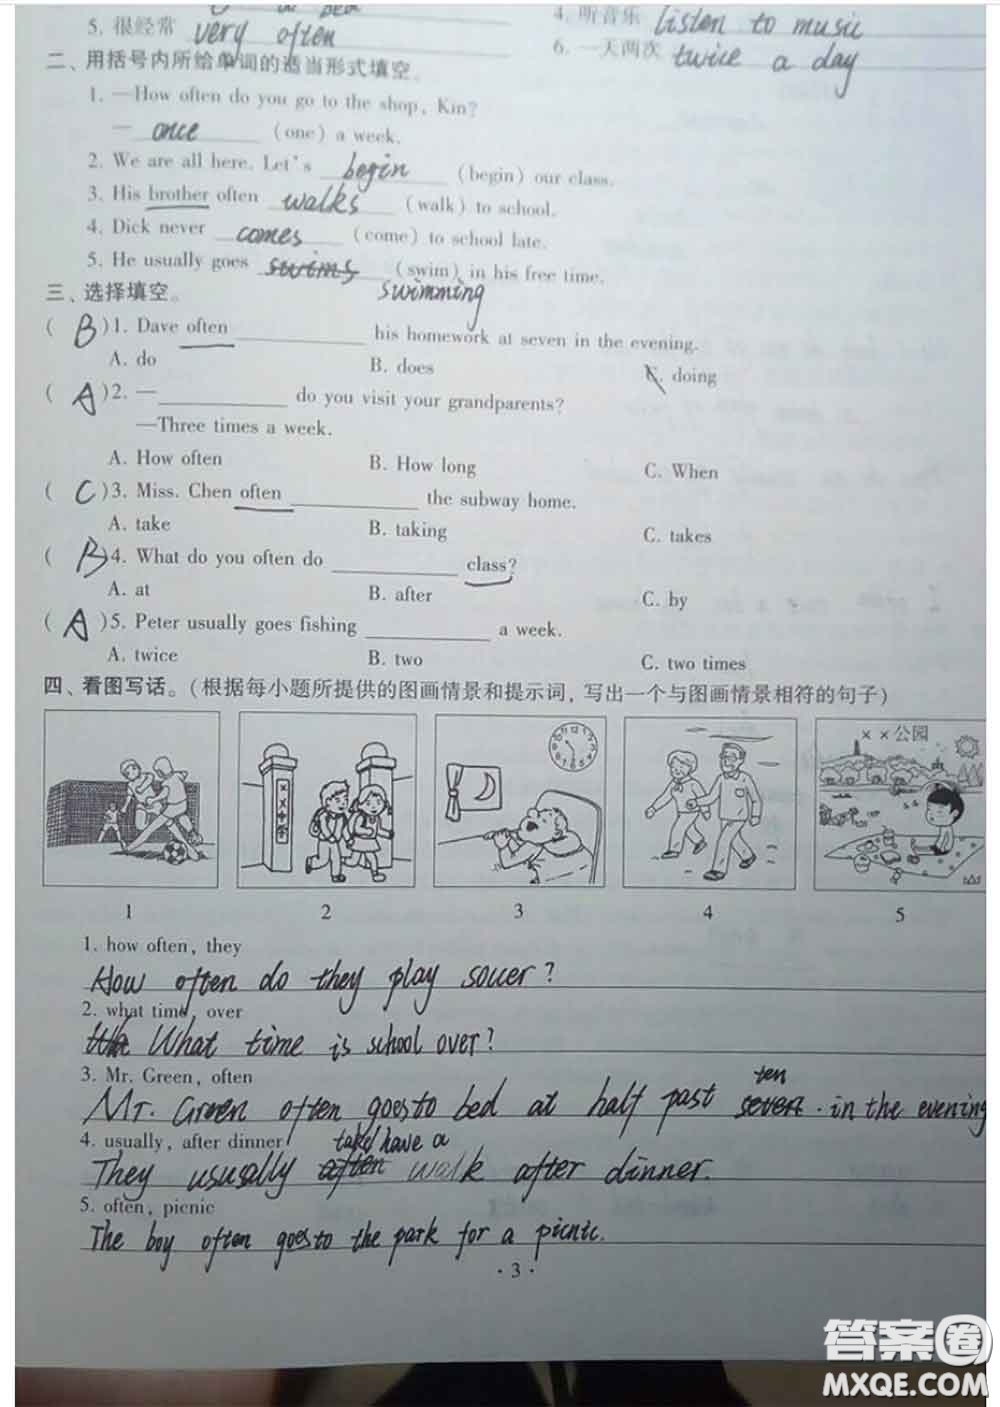 5. 很经常 very often
4. 听音乐 listen to music
6. 一天两次 twice a day
二、用括号内所给单词的适当形式填空。
1. —How often do you go to the shop, Kin?
— once (one) a week.
2. We are all here. Let's begin (begin) our class.
3. His brother often walks (walk) to school.
4. Dick never comes (come) to school late.
5. He usually goes swims (swim) in his free time.
swimming
三、选择填空。
( B )1. Dave often ________ his homework at seven in the evening.
A. do B. does C. doing
( A )2. —________ do you visit your grandparents?
—Three times a week.
A. How often B. How long C. When
( C )3. Miss. Chen often ________ the subway home.
A. take B. taking C. takes
( B )4. What do you often do ________ class?
A. at B. after C. by
( A )5. Peter usually goes fishing ________ a week.
A. twice B. two C. two times
四、看图写话。(根据每小题所提供的图画情景和提示词,写出一个与图画情景相符的句子)
××公园
××小学
1 2 3 4 5
1. how often, they
How often do they play soccer?
2. what time, over
What time is school over?
3. Mr. Green, often
ten
Mr. Green often goes to bed at half past seven in the evening
4. usually, after dinner
take/have a
They usually often walk after dinner.
5. often, picnic
The boy often goes to the park for a picnic.
· 3 ·
答案圈
MXQE.COM